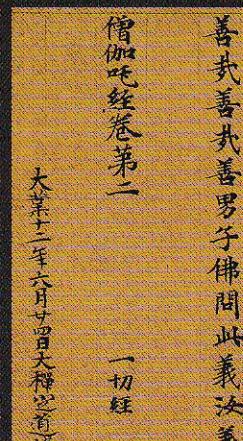 善哉善哉善男子佛問此義汝善
僧伽吒經卷第二
一切經
大業十二年六月廿四日大禪定道